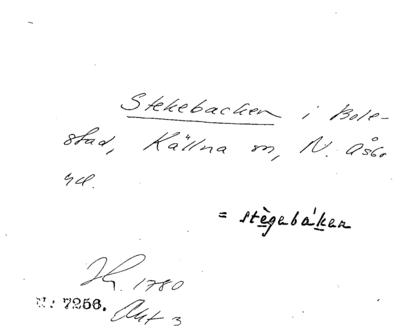 Stekebacken i Bole-
stad, Källna sn, N. Åsbo
hd.
= stègebáken
1780
N: 7256. Akt 3